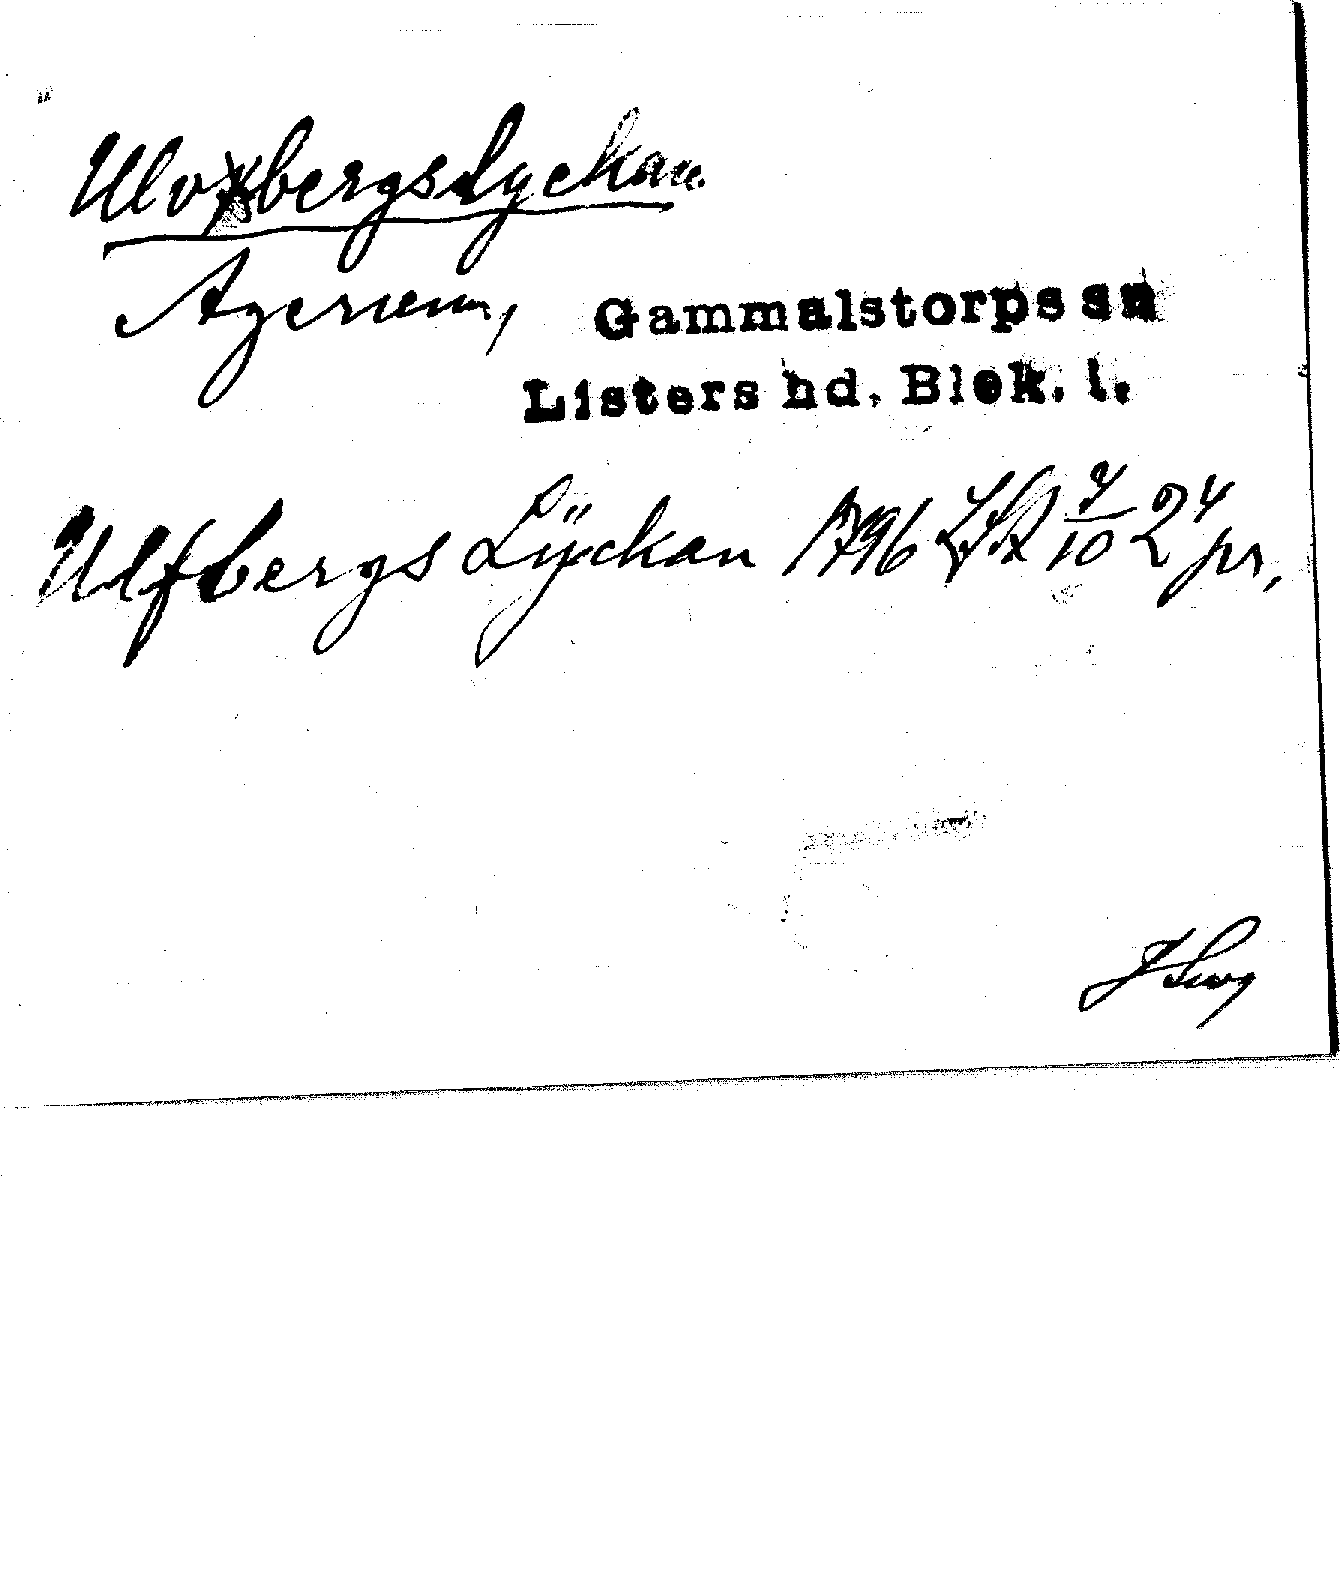 Ulvsbergslyckan
Agerum, Gammalstorps sn
Listers hd. Blek. l.
Ulfbergs Lÿckan 1796 LSA 7/10 24 pr,